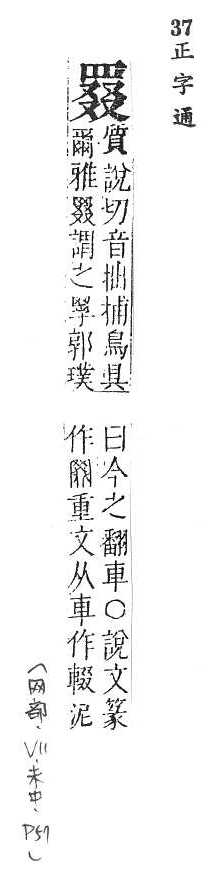 37 正字通
罬
質說切音拙捕鳥具
爾雅罬謂之罦郭璞
曰今之翻車〇說文篆
作重文从車作輟泥
(网部、VII、未中、P57)